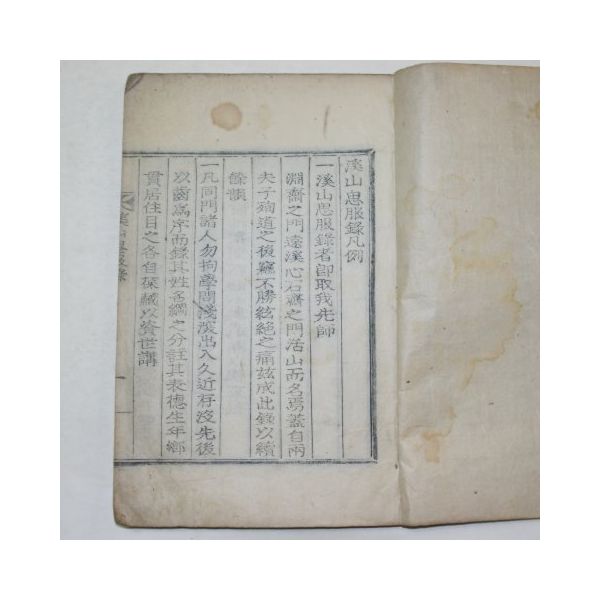 溪山思服錄凡例
一溪山思服錄者卽取我先師
淵齋之門遠溪心石齋之門活山而名焉蓋自兩
夫子殉道之後竊不勝絃絶之痛玆成此錄以續
餘韻
一凡同門諸人勿拘學問淺深出入久近存沒先後
以齒爲序而錄其姓名綱之分註其表德生年鄕
貫居住目之各自葆藏以資世講
溪山思服錄
一